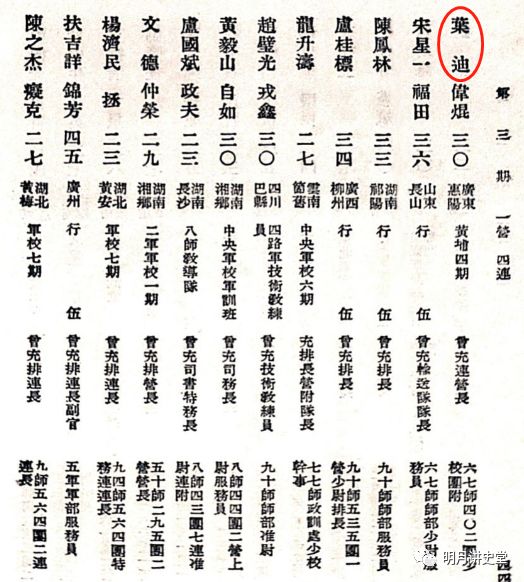 第三期 一營四連
葉迪 偉焜 三〇 廣東惠陽 黃埔四期 曾充連營長 六七師四〇二團少校團附
宋星一 福田 三六 山東長山 行伍 曾充輸送隊隊長 六七師師部少尉服務員
陳鳳林 三三 湖南祁陽 行伍 曾充排長 九十師師部服務員
盧桂標 三四 廣西柳州 行伍 曾充排長 九十師五三五團一營少尉排長
龍升濤 二七 雲南箇舊 中央軍校六期 充排長營附隊長 七七師政訓處少校幹事
趙璧光 戎鑫 三〇 四川巴縣 四路軍技術教練員 曾充技術教練員 九十師師部准尉
黃毅山 自如 三〇 湖南湘鄉 中央軍校軍訓班 曾充司務長 八師四四團二營上尉服務員
盧國斌 政夫 二三 湖南長沙 八師教導隊 曾充司書特務長 八師四三團七連准尉連附
文德 仲榮 二九 湖南湘鄉 二軍軍校一期 曾充排營長 五十師二九五團二營營長
楊濟民 拯 二三 湖北黃安 軍校七期 曾充排連長 九四師五六四團特務連連長
扶吉詳 錦芳 四五 廣州 行伍 曾充排連長副官 五軍軍部服務員
陳之杰 癡克 二七 湖北黃梅 軍校七期 曾充排連長 九師五六四團二連連長
明月讲史堂